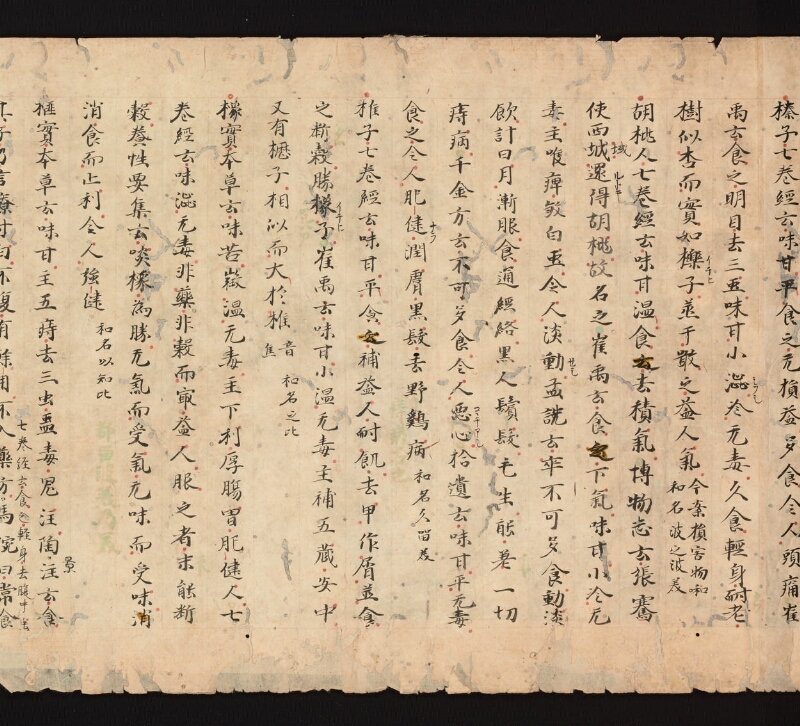 榛子七巻經云味甘平食之无損益多食令人頭痛崔
禹云食之明目去三虫味甘小澁冷无毒久食輕身耐老
樹似杏而實如櫟子並干散之益人氣今案損害物和
和名波之波美
胡桃人七巻經云味甘温食去積氣博物志云張騫
使西域還得胡桃故名之崔禹云食下氣味甘小冷无
毒主喉痺殺白虫令人淡動孟詵云卒不可多食動淡
飲計日月漸服食通經絡黒人鬢髮毛生能差一切
痔病千金方云不可多食令人惡心拾遺云味甘平无毒
食之令人肥健潤膚黒髮去野鷄病和名久留美
椎子七巻經云味甘平食補益人耐飢去甲作屑並食
之断穀勝橡子崔禹云味甘小温无毒主補五藏安中
又有櫪子相似而大於椎音隹和名之比
橡實本草云味苦㣲温无毒主下利厚腸胃肥健人七
巻經云味澁无毒非藥非穀而㝡益人服之者未能断
穀養性要集云啖橡為勝无氣而受氣无味而受味消
消食而止利令人強健和名以知比
榧實本草云味甘主五痔去三虫蠱毒鬼注陶景注云食
其子乃言療寸白不復有餘用不入藥方馬琬曰常食
七巻經云食之輕身去腹中虫